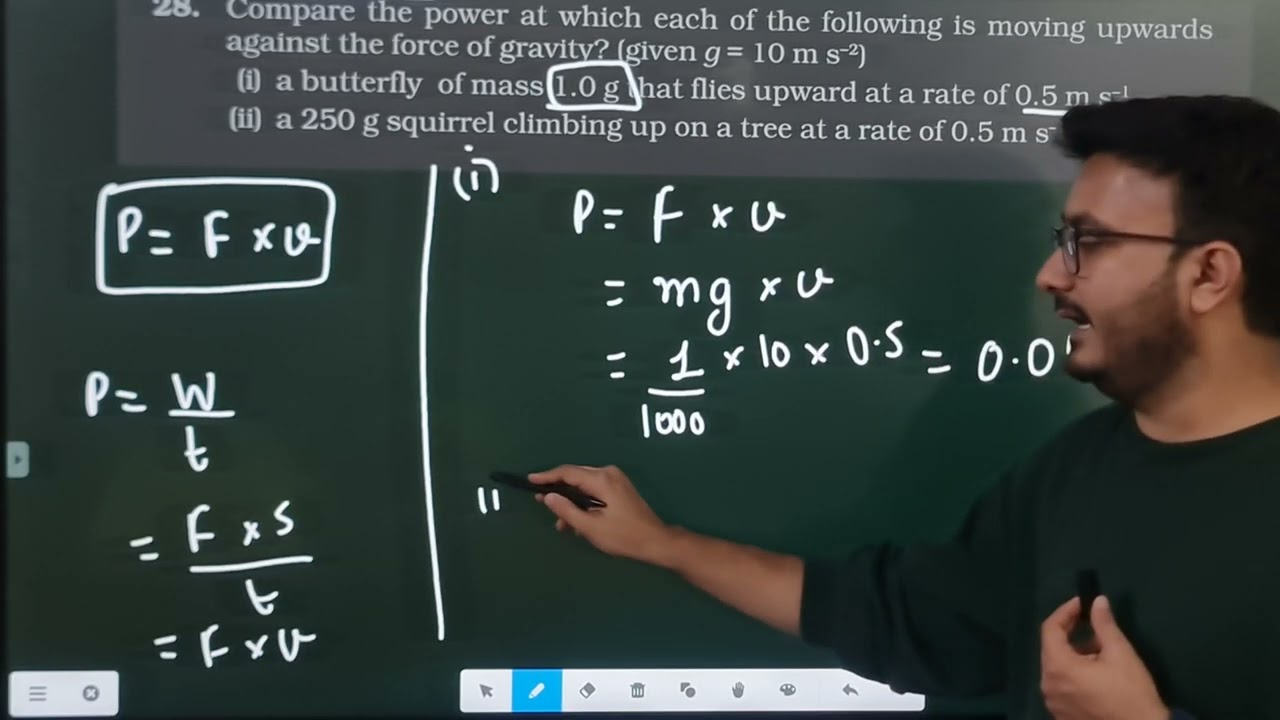 28. Compare the power at which each of the following is moving upwards
against the force of gravity? (given g = 10 m s⁻²)
(i) a butterfly of mass 1.0 g that flies upward at a rate of 0.5 m s⁻¹
(ii) a 250 g squirrel climbing up on a tree at a rate of 0.5 m s⁻
P = F × v
P = W
t
= F × s
t
= F × v
(i)
P = F × v
= mg × v
= 1 × 10 × 0.5 = 0.0
1000
II